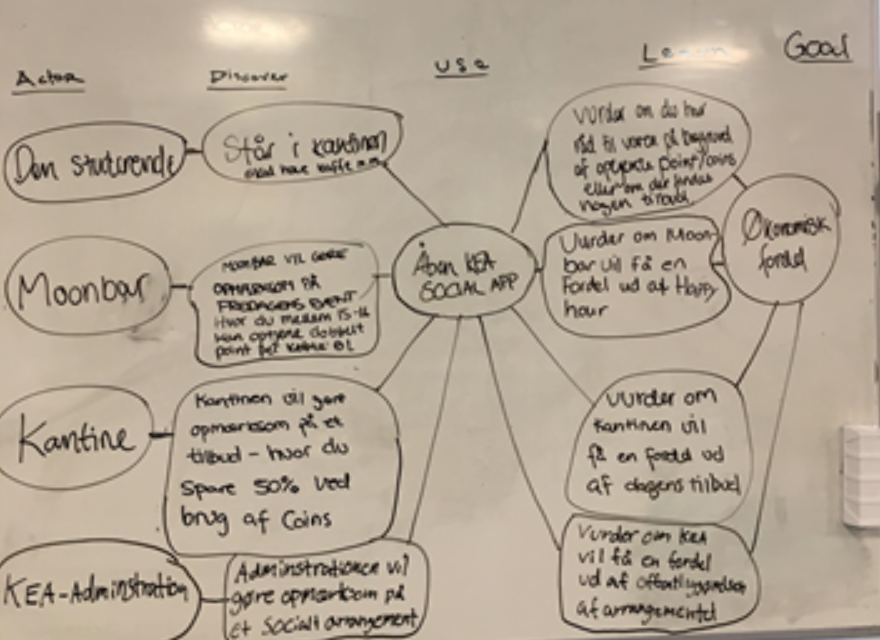 Actor
Discover
Use
Learn
Goal
Den studerende
Står i kantinen
skal have kaffe
Moonbar
MOONBAR VIL GØRE
OPMÆRKSOM PÅ
FREDAGENS EVENT
Hvor du mellem 15-16
kan optjene dobbelt
point per købte ØL
Kantine
Kantinen vil gøre
opmærksom på et
tilbud - hvor du
spare 50% ved
brug af Coins
KEA-Adminstration
Adminstrationen vil
gøre opmærksom på
et Socialt arrangement
Åben KEA
SOCIAL APP
Vurder om du har
råd til varen på baggrund
af optjente point/coins
eller om der findes
nogen tilbud
Vurder om Moon-
bar vil få en
Fordel ud af Happy
hour
Vurder om
Kantinen vil
få en fordel ud
af dagens tilbud
Vurder om KEA
vil få en fordel
ud af offentliggørelsen
af arrangementet
Økonomisk
fordel